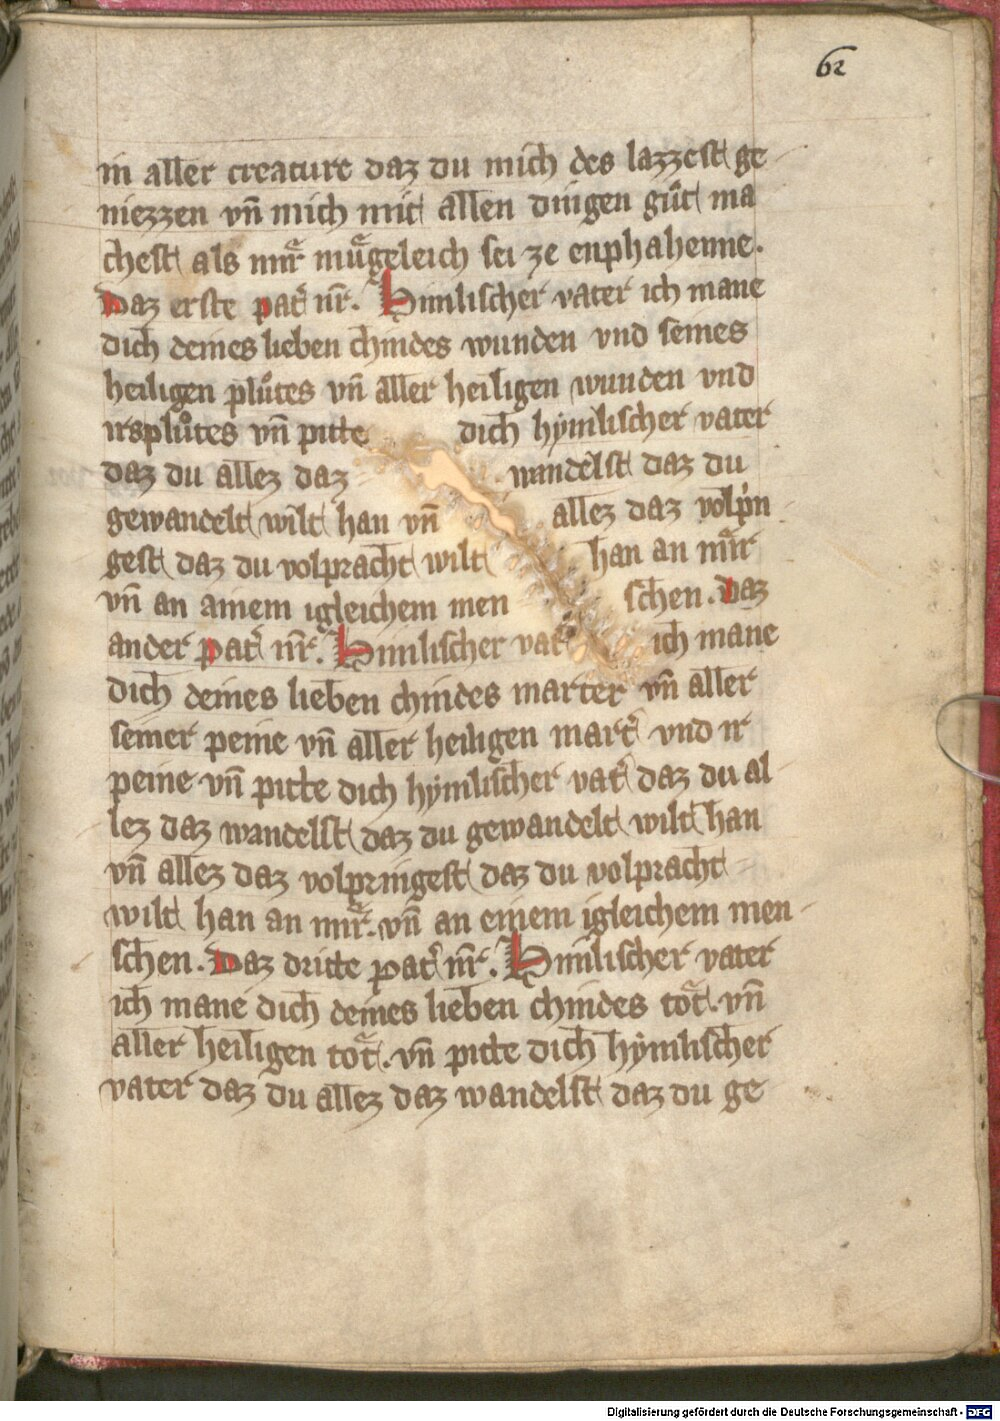 62
in aller creature daz du mich des lazzest ge
niezzen vn̄ mich mit allen dingen gůt ma
chest als mir mügeleich sei ze enphahenne.
Daz erste pat̛ nr̄. Himlischer vater ich mane
dich deines lieben chindes wunden vnd seines
heiligen plůtes vn̄ aller heiligen wunden vnd
irs plůtes vn̄ pitte dich hymlischer vater
daz du allez daz wandelst daz du
gewandelt wilt han vn̄ allez daz volprin
gest daz du volpracht wilt han an mir
vn̄ an ainem igleichem men schen. Daz
ander pat̛ nr̄. Himlischer vat̛ ich mane
dich deines lieben chindes marter vn̄ aller
seiner peine vn̄ aller heiligen mart̛ vnd ir
peine vn̄ pitte dich hymlischer vat̛ daz du al
lez daz wandelst daz du gewandelt wilt han
vn̄ allez daz volpringest daz du volpracht
wilt han an mir. vn̄ an einem igleichem men
schen. Daz dritte pat̛ nr̄. Himlischer vater
ich mane dich deines lieben chindes toͤt. vn̄
aller heiligen toͤt. vn̄ pitte dich hymlischer
vater daz du allez daz wandelst daz du ge
Digitalisierung gefördert durch die Deutsche Forschungsgemeinschaft - DFG